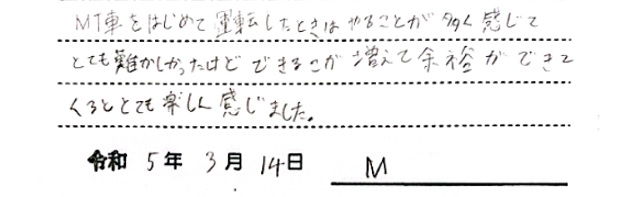 MT車をはじめて運転したときはやることが多く感じて
とても難かしかったけどできるこが増えて余裕ができて
くるととても楽しく感じました。
令和 5年 3月 14日 M